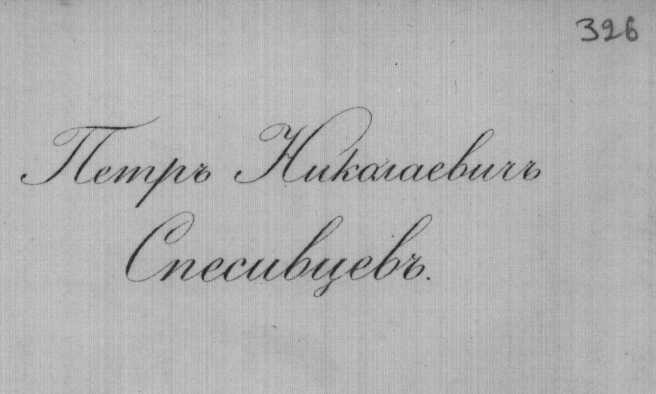 326
Петръ Николаевичъ
Спесивцевъ.